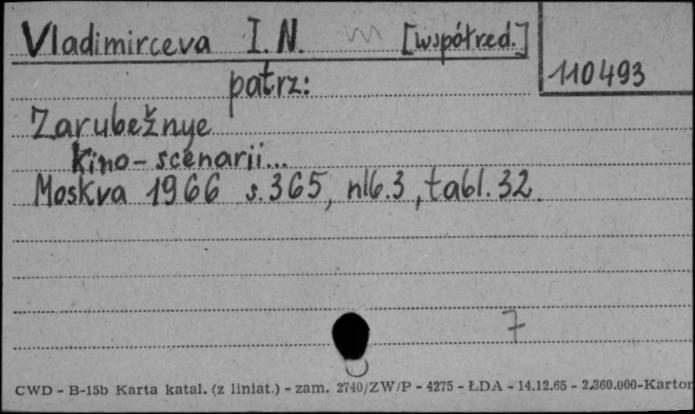 Vladimirceva I. N. [współred.]
110493
patrz:
Zarubežnye
kino-scenarii...
Moskva 1966 s.365, nlb.3, tabl.32.
7
CWD - B-15b Karta katal. (z liniat.) - zam. 2740/ZW/P - 4275 - ŁDA - 14.12.65 - 2.360.000-Karton